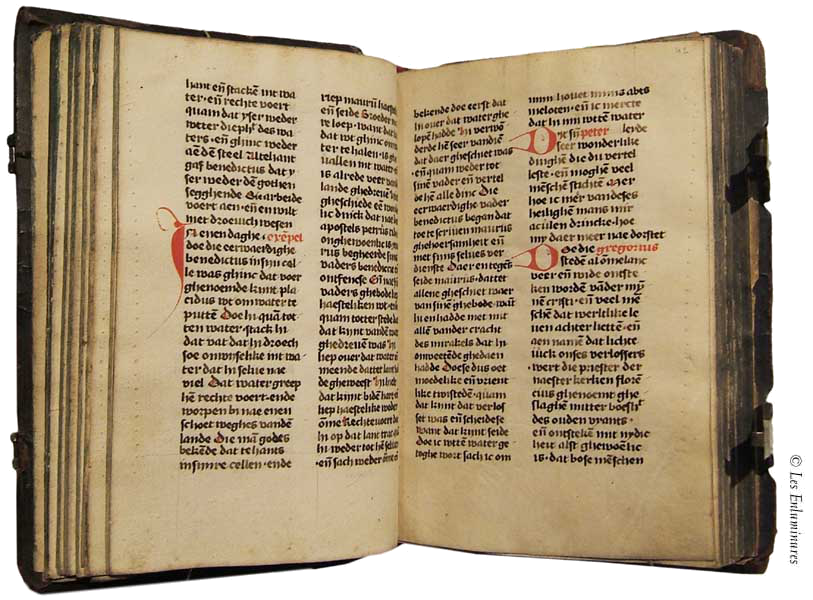 hant en̄ stackē int wa
ter · en̄ rechte voert
quam dat yser weder
wter dieph̄ des wa
ters · en̄ ghinc weder
aē dē steel Altehant
gaf benedictus dat y
ser weder dē gothen
segghende Su arbeide
voert aen · en̄ en wilt
niet droevich wesen
In enen daghe · exēpel
doe die eerwaerdighe
benedictus in sijn cel
le was ghinc dat voer
ghenoemde kint pla
cidus wt om water te
puttē Doe hi quā tot
ten water stack hi
dat vat dat hi droech
soe onwijselike int wa
ter dat hi selve nae
viel Dat water greep
hē rechte voert · ende
worpen bi nae enen
schoet weghes vandē
lande Die mā gods
bekēde dat tehants
in sijnre cellen · ende
riep maurū haest
en̄ seide Broeder
re loep · want dat
dat wt ghinc om
ter te halen · is gh
vallen int water
is alrede veer van
lande ghedreven
gheschiede eē won
lic dinck dat nae
apostels petrus t
onghewoenlic is
rus begheerde sijn
vaders benedictie
ontfenc
vaders ghebode
haestelikē wt ·
quam totter stede
dat kint vandē wa
ghedreven was
liep over dat water
meende dattet lan
de gheweest Hi
dat kint bidē hare
liep haestelike weder
ōme Rechtevoert d
hi op dat lant trat
hi weder tot hē selv
en̄ sach weder ōme
bekende doe eerst dat
hi over dat water ghe
lopē hadde In verwō
derde hē seer van diē
dat daer gheschiet was
· en̄ quam weder tot
sinē vader en̄ vertel
de hē alle dinc Die
eerwaerdighe vader
benedictus began dat
toe te scriven maurus
ghehoersamheit en̄
niet sijns selves ver
dienste Daer enteghē
seide maurus · dattet
allene gheschiet waer
van sinē ghebode · wāt
hi en hadde niet mit
allē vander cracht
des mirakels dat hi
onweetēde ghedaen
hadde Doe se dus oet
moedelike en̄ vrient
like twistedē · quam
dat kint dat verlos
set was en̄ scheidese
want dat kint seide
Doe ic wtē water ge
toghe wort sach ic om
mijn hovet mijns abts
meloten · en̄ ic mercte
dat hi mi wttē water
Dyt sijn peter
seer wonderlike
dinghē die du vertel
leste · en̄ moghē veel
mēschē stichtē Mer
hoe ic meer van deses
heilighē mans mir
aculen drincke · hoe
my daer meer nae dorstet
Doe die gregorius
stedē al omelanc
veer en̄ wide ontste
ken wordē vāder mȳ
nē cristi · en̄ veel mē
schē dat werltlike le
ven achter lietē · en̄
aen namē dat lichte
iuck onses verlossers
· wert die priester der
naester kerken floren
cius ghenoemt ghe
slaghē mitter boesh̄t
des ouden vyants ·
en̄ ontstekē mit nyde
heit alst ghewoēlic
is · dat bose mēschen
© Les Enluminures